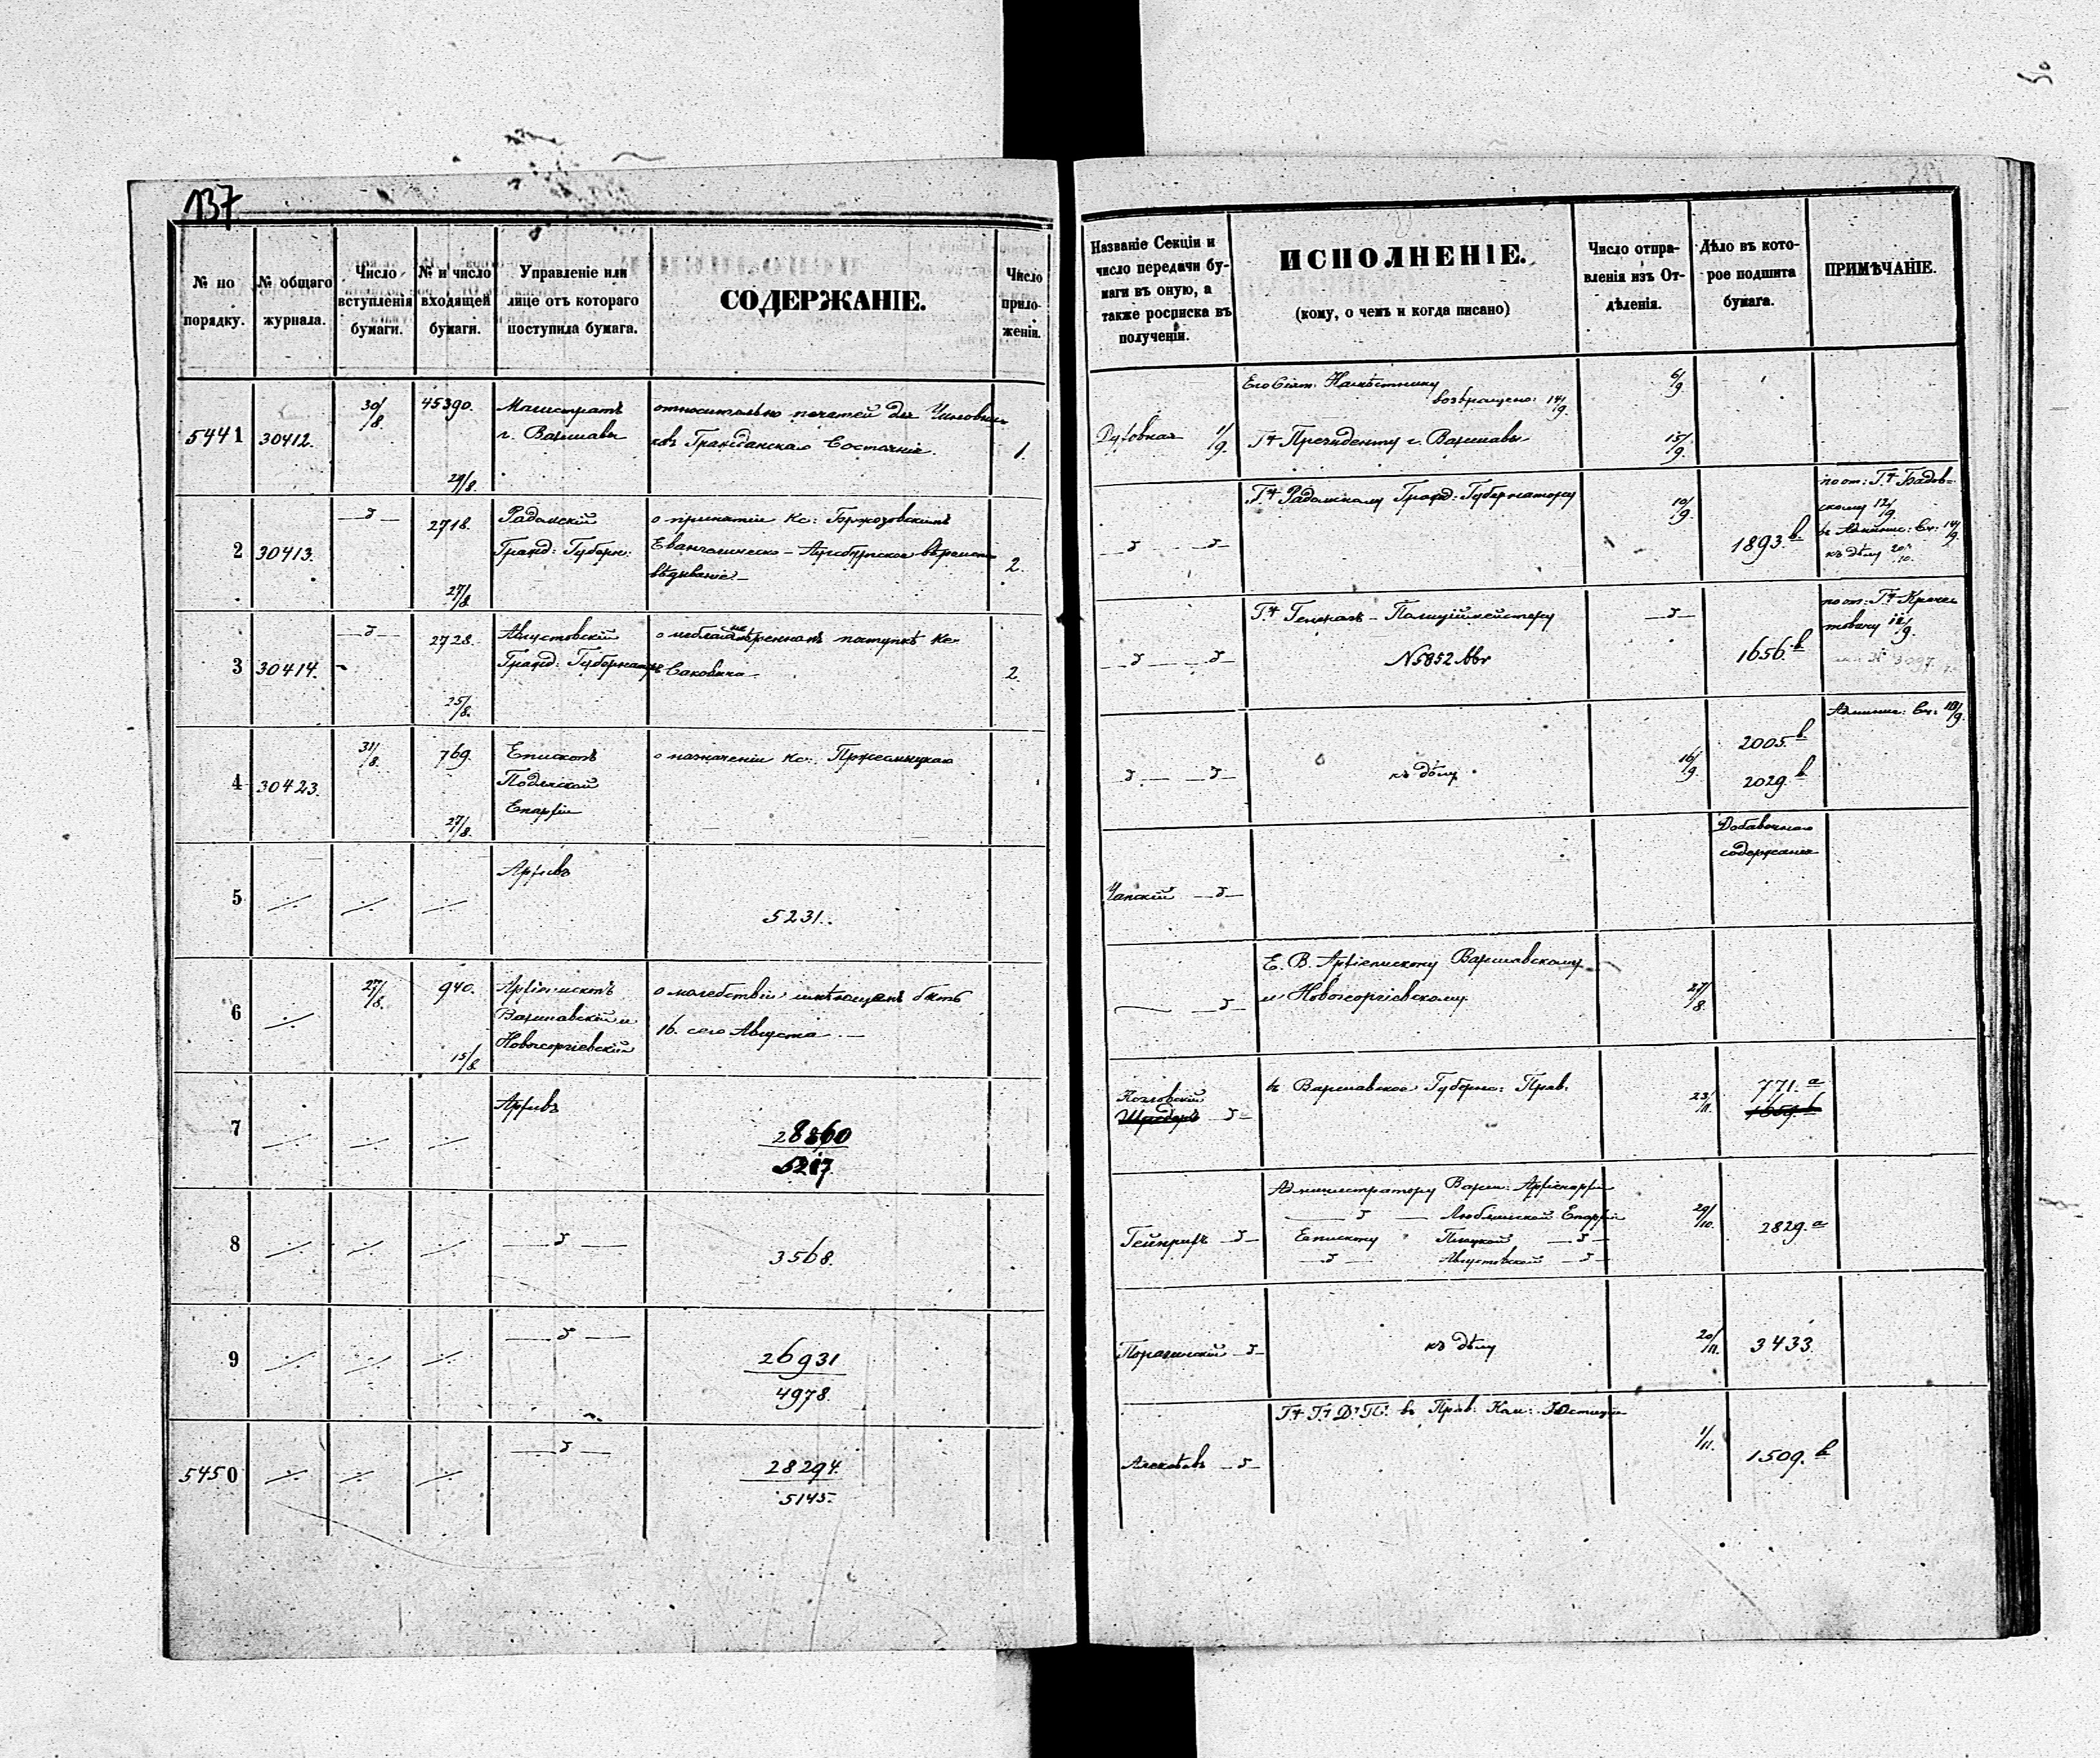 50
137
№ по порядку.
№ общаго журнала.
Число вступленія бумаги.
№ и число входящей бумаги.
Управленіе или лице отъ котораго поступила бумага.
СОДЕРЖАНІЕ.
Число приложеній.
Названіе Секціи и число передачи бумаги въ оную, а также росписка въ полученіи.
ИСПОЛНЕНІЕ.
(кому, о чемъ и когда писано)
Число отправленія изъ Отдѣленія.
Дѣло въ которое подшита бумага.
ПРИМѢЧАНІЕ.
5441 30412. 30/8 45390. 29/8. Магистратъ г. Варшавы
относительно печатей для Чиновниковъ Гражданскаго Состоянія. 1.
Духовная 1/9. Его Сіят. Намѣстнику 6/9
возвращено: 14/9.
Гну Президенту г. Варшавы 15/9.
2 30413. 2718. 27/8 Радомскій Гражд: Губерн:
о принятіи Кс: Бржозовскимъ
Евангелическо-Аугсбургское вѣроисповѣданіе 2.
Гну Радомскому Гражд: Губернатору 10/9. 1893. b.
по от: Гну
скому 12/9.
14/9.
къ дѣлу
3 30414. 2728. 25/8. Августовскій Гражд: Губернаторъ
о неблагонамѣренномъ поступкѣ Кс. Саковича 2.
Гну Генералъ-Полиціймейстеру
N5852 1656. b
по от: Гну
4 30423. 31/8. 769. 27/8. Епископъ Подляской Епархіи
о назначеніи Кс:
къ дѣлу 16/9. 2005. b.
2029. b
5 Архивъ
5231.
Чапскій
Добавочнаго содержанія
6 27/8. 940. 15/8. Архіепископъ Варшавскій и Новогеоргіевскій
о молебствіи имѣющемъ быть
16. сего Августа.
Е. В. Архіепископу Варшавскому
и Новогеоргіевскому. 27/8.
7 Архивъ
28860
5217.
Козловскій
въ Варшавское Губерн: Прав. 23/11. 771. a
1659. b
8 3568.
Гейнрихъ
Администратору Варш: Архіепархіи
Люблинской Епархіи
Епископу Плоцкой
Августовской
29/10. 2829. a
9 26931
4978.
къ дѣлу 20/11. 3433.
5450 28294.
5145.
въ Прав. Ком: Юстиціи 1/11. 1509. b